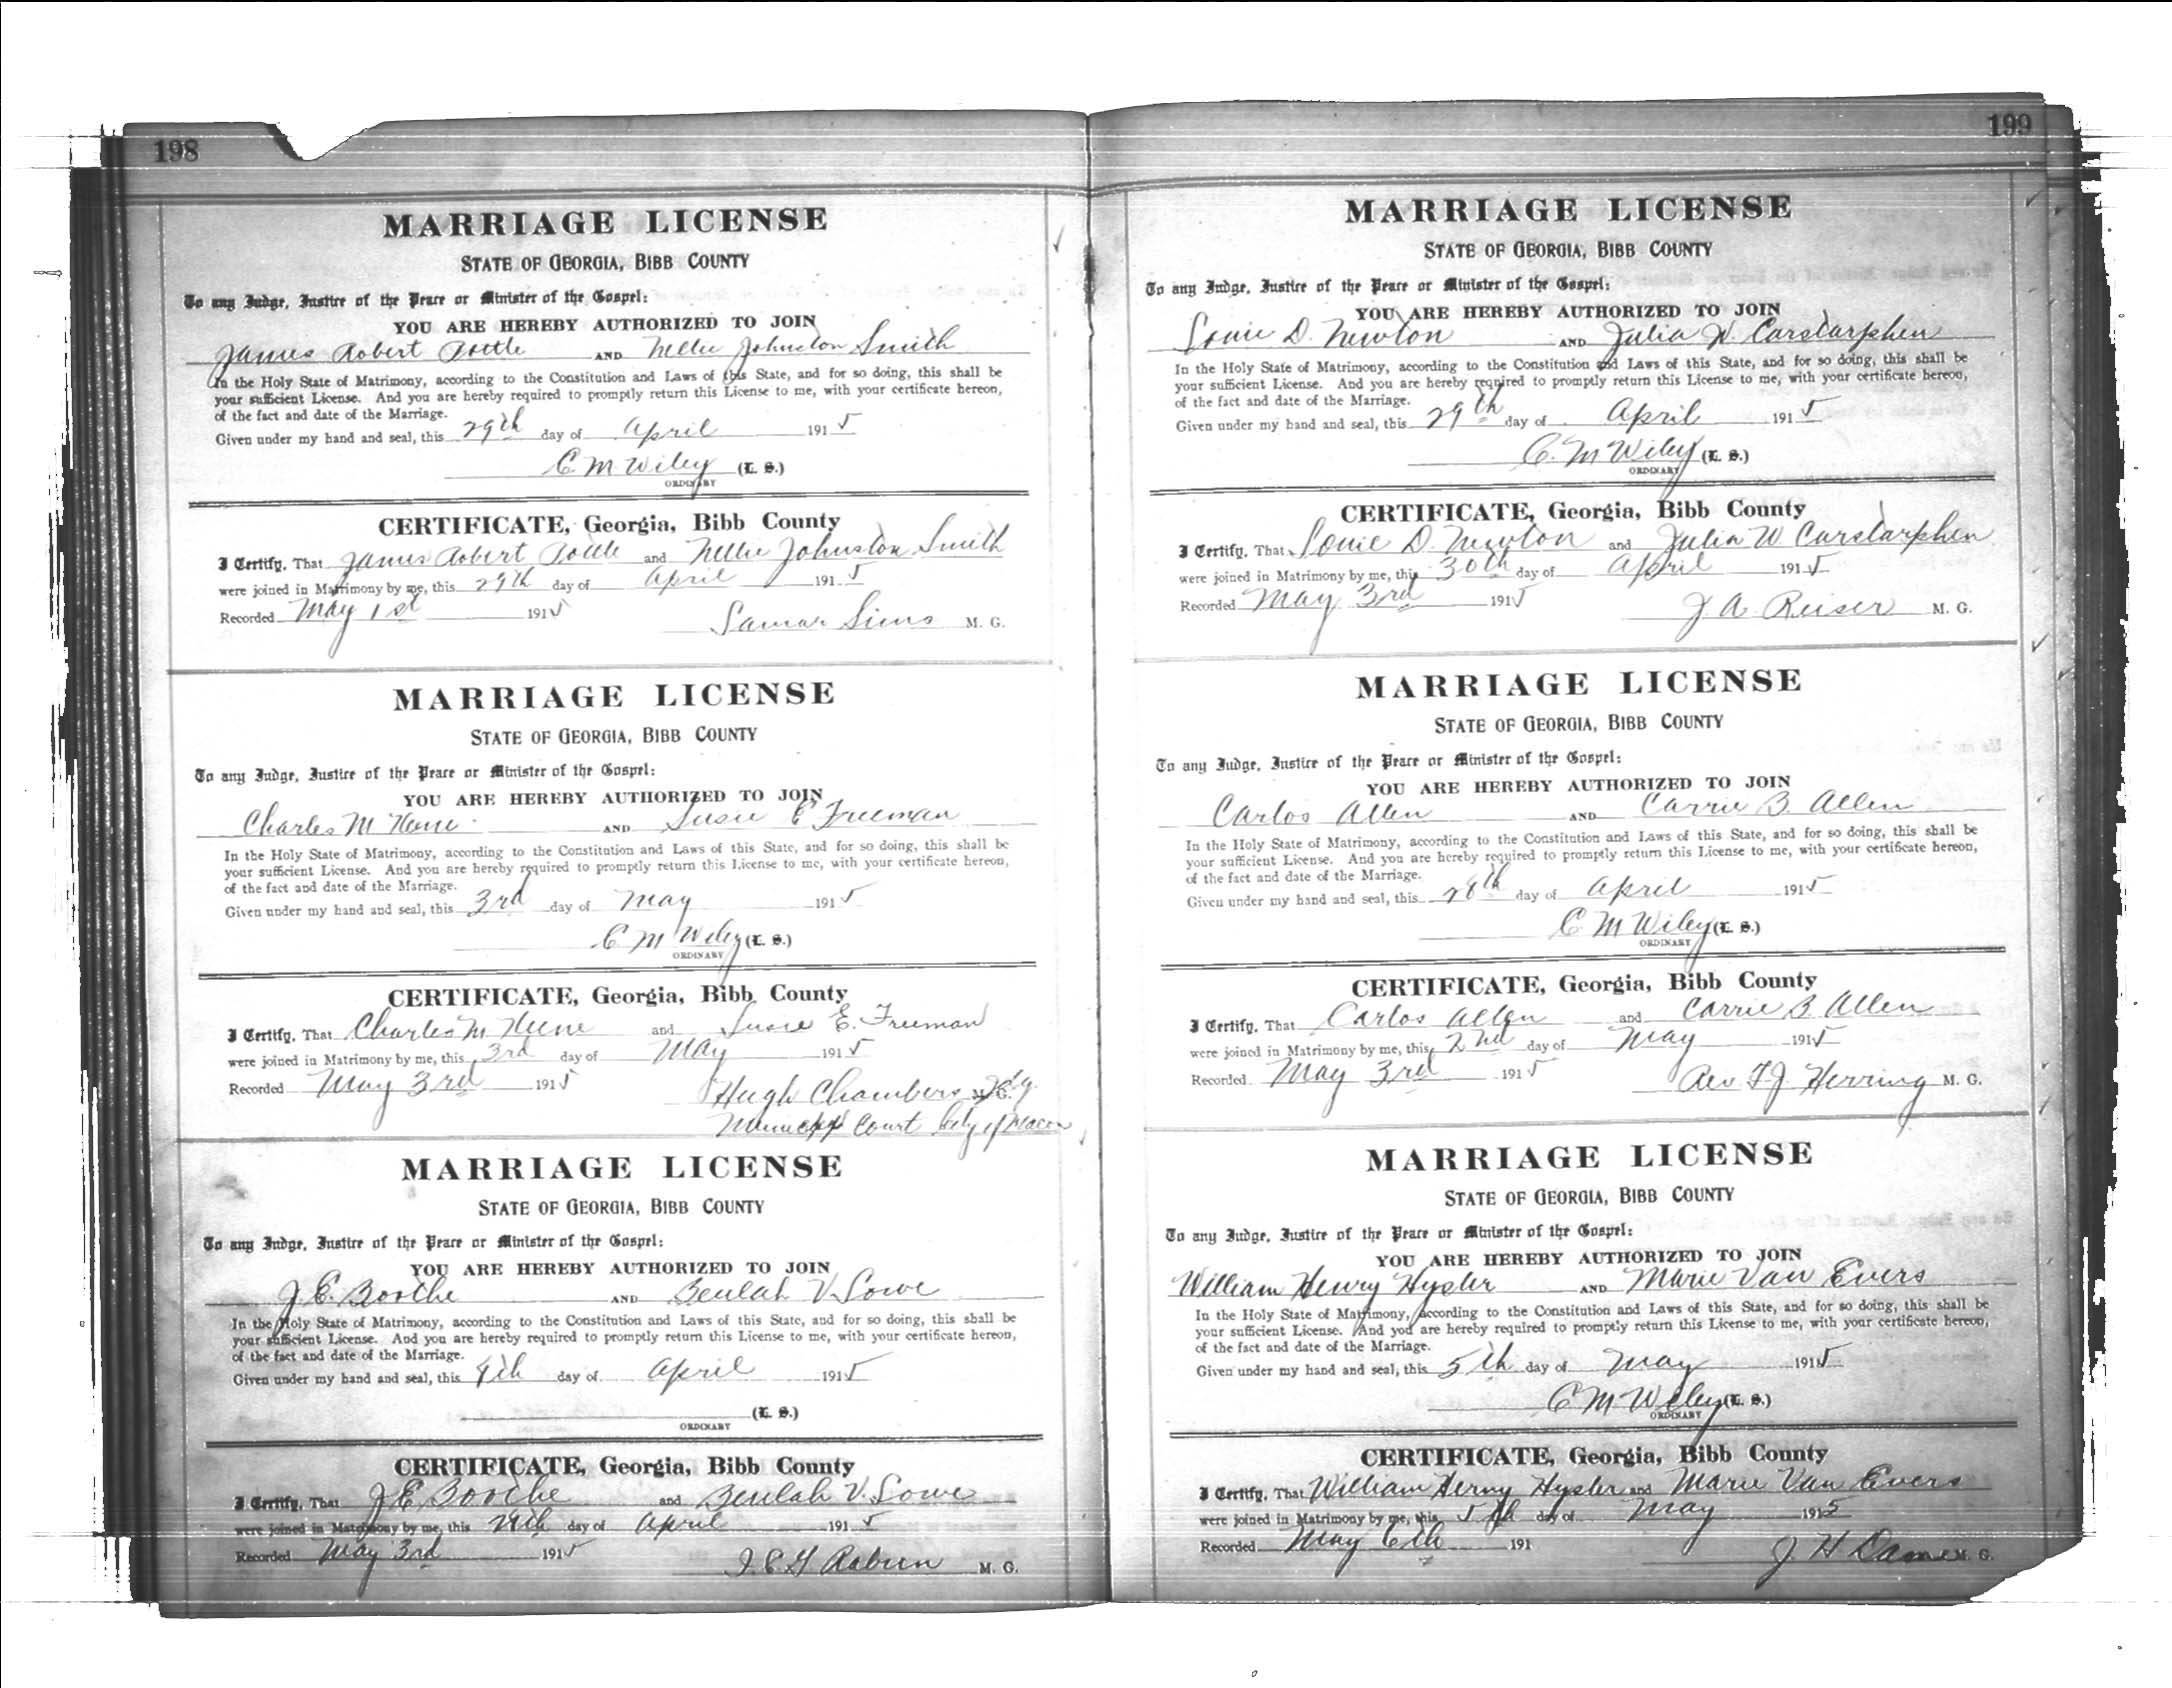 198
MARRIAGE LICENSE
STATE OF GEORGIA, BIBB COUNTY
To any Judge, Justice of the Peace or Minister of the Gospel:
YOU ARE HEREBY AUTHORIZED TO JOIN
James Robert Pottle AND Nellie Johnston Smith
In the Holy State of Matrimony, according to the Constitution and Laws of this State, and for so doing, this shall be
your sufficient License. And you are hereby required to promptly return this License to me, with your certificate hereon,
of the fact and date of the Marriage.
Given under my hand and seal, this 29th day of April 1915
C M Wiley (L. S.)
ORDINARY
CERTIFICATE, Georgia, Bibb County
I Certify, That James Robert Pottle and Nellie Johnston Smith
were joined in Matrimony by me, this 29th day of April 1915
Recorded May 1st 1915
Lamar Sims M. G.
MARRIAGE LICENSE
STATE OF GEORGIA, BIBB COUNTY
To any Judge, Justice of the Peace or Minister of the Gospel:
YOU ARE HEREBY AUTHORIZED TO JOIN
Charles M AND Susie E Freeman
In the Holy State of Matrimony, according to the Constitution and Laws of this State, and for so doing, this shall be
your sufficient License. And you are hereby required to promptly return this License to me, with your certificate hereon,
of the fact and date of the Marriage.
Given under my hand and seal, this 3rd day of May 1915
C M Wiley (L. S.)
ORDINARY
CERTIFICATE, Georgia, Bibb County
I Certify, That Charles M and Susie E. Freeman
were joined in Matrimony by me, this 3rd day of May 1915
Recorded May 3rd 1915
Hugh Chambers M. G.
Court City of Macon
MARRIAGE LICENSE
STATE OF GEORGIA, BIBB COUNTY
To any Judge, Justice of the Peace or Minister of the Gospel:
YOU ARE HEREBY AUTHORIZED TO JOIN
J. E. Boothe AND Beulah V. Lowe
In the Holy State of Matrimony, according to the Constitution and Laws of this State, and for so doing, this shall be
your sufficient License. And you are hereby required to promptly return this License to me, with your certificate hereon,
of the fact and date of the Marriage.
Given under my hand and seal, this day of April 1915
(L. S.)
ORDINARY
CERTIFICATE, Georgia, Bibb County
I Certify, That J E Boothe and Beulah V. Lowe
were joined in Matrimony by me, this day of April 1915
Recorded May 3rd 1915
J. C. G Rabun M. G.
199
MARRIAGE LICENSE
STATE OF GEORGIA, BIBB COUNTY
To any Judge, Justice of the Peace or Minister of the Gospel:
YOU ARE HEREBY AUTHORIZED TO JOIN
Louie D. Newton AND Julia W. Carstarphen
In the Holy State of Matrimony, according to the Constitution and Laws of this State, and for so doing, this shall be
your sufficient License. And you are hereby required to promptly return this License to me, with your certificate hereon,
of the fact and date of the Marriage.
Given under my hand and seal, this 29th day of April 1915
C. M Wiley (L. S.)
ORDINARY
CERTIFICATE, Georgia, Bibb County
I Certify, That Louie D. Newton and Julia W Carstarphen
were joined in Matrimony by me, this 30th day of April 1915
Recorded May 3rd 1915
J A Reiser M. G.
MARRIAGE LICENSE
STATE OF GEORGIA, BIBB COUNTY
To any Judge, Justice of the Peace or Minister of the Gospel:
YOU ARE HEREBY AUTHORIZED TO JOIN
Carlos Allen AND Carrie B. Allen
In the Holy State of Matrimony, according to the Constitution and Laws of this State, and for so doing, this shall be
your sufficient License. And you are hereby required to promptly return this License to me, with your certificate hereon,
of the fact and date of the Marriage.
Given under my hand and seal, this 28th day of April 1915
C M Wiley (L. S.)
ORDINARY
CERTIFICATE, Georgia, Bibb County
I Certify, That Carlos Allen and Carrie B. Allen
were joined in Matrimony by me, this 2nd day of May 1915
Recorded May 3rd 1915
Rev F. J. Herring M. G.
MARRIAGE LICENSE
STATE OF GEORGIA, BIBB COUNTY
To any Judge, Justice of the Peace or Minister of the Gospel:
YOU ARE HEREBY AUTHORIZED TO JOIN
William Henry Hysler AND Marie Van Evers
In the Holy State of Matrimony, according to the Constitution and Laws of this State, and for so doing, this shall be
your sufficient License. And you are hereby required to promptly return this License to me, with your certificate hereon,
of the fact and date of the Marriage.
Given under my hand and seal, this 5th day of May 1915
C M Wiley (L. S.)
ORDINARY
CERTIFICATE, Georgia, Bibb County
I Certify, That William Henry Hysler and Marie Van Evers
were joined in Matrimony by me, this 5th day of May 1915
Recorded May 6th 191
J H Dame M. G.